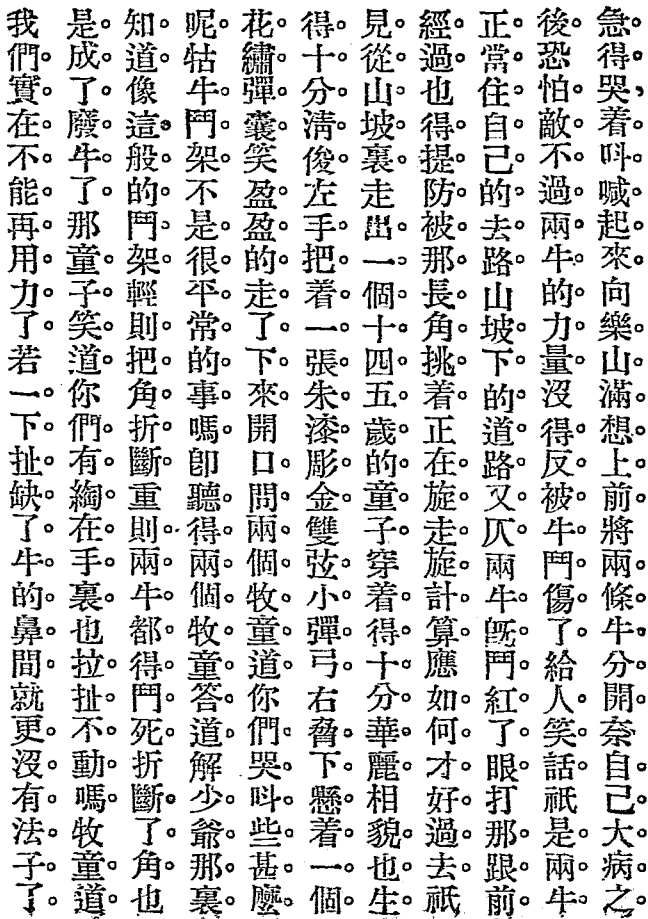 急得哭着呌喊起來向樂山滿想上前將兩條牛分開奈自己大病之
後恐怕敵不過兩牛的力量沒得反被牛鬥傷了給人笑話祇是兩牛
正當住自己的去路山坡下的道路又仄兩牛旣鬥紅了眼打那跟前
經過也得提防被那長角挑着正在旋走旋計算應如何才好過去祇
見從山坡裏走出一個十四五歲的童子穿着得十分華麗相貌也生
得十分淸俊左手把着一張朱漆彫金雙弦小彈弓右脅下懸着一個
花繡彈囊笑盈盈的走了下來開口問兩個牧童道你們哭呌些甚麼
呢牯牛鬥架不是很平常的事嗎卽聽得兩個牧童答道解少爺那裏
知道像這般的鬥架輕則把角折斷重則兩牛都得鬥死折斷了角也
是成了廢牛了那童子笑道你們有綯在手裏也拉扯不動嗎牧童道
我們實在不能再用力了若一下扯缺了牛的鼻間就更沒有法子了